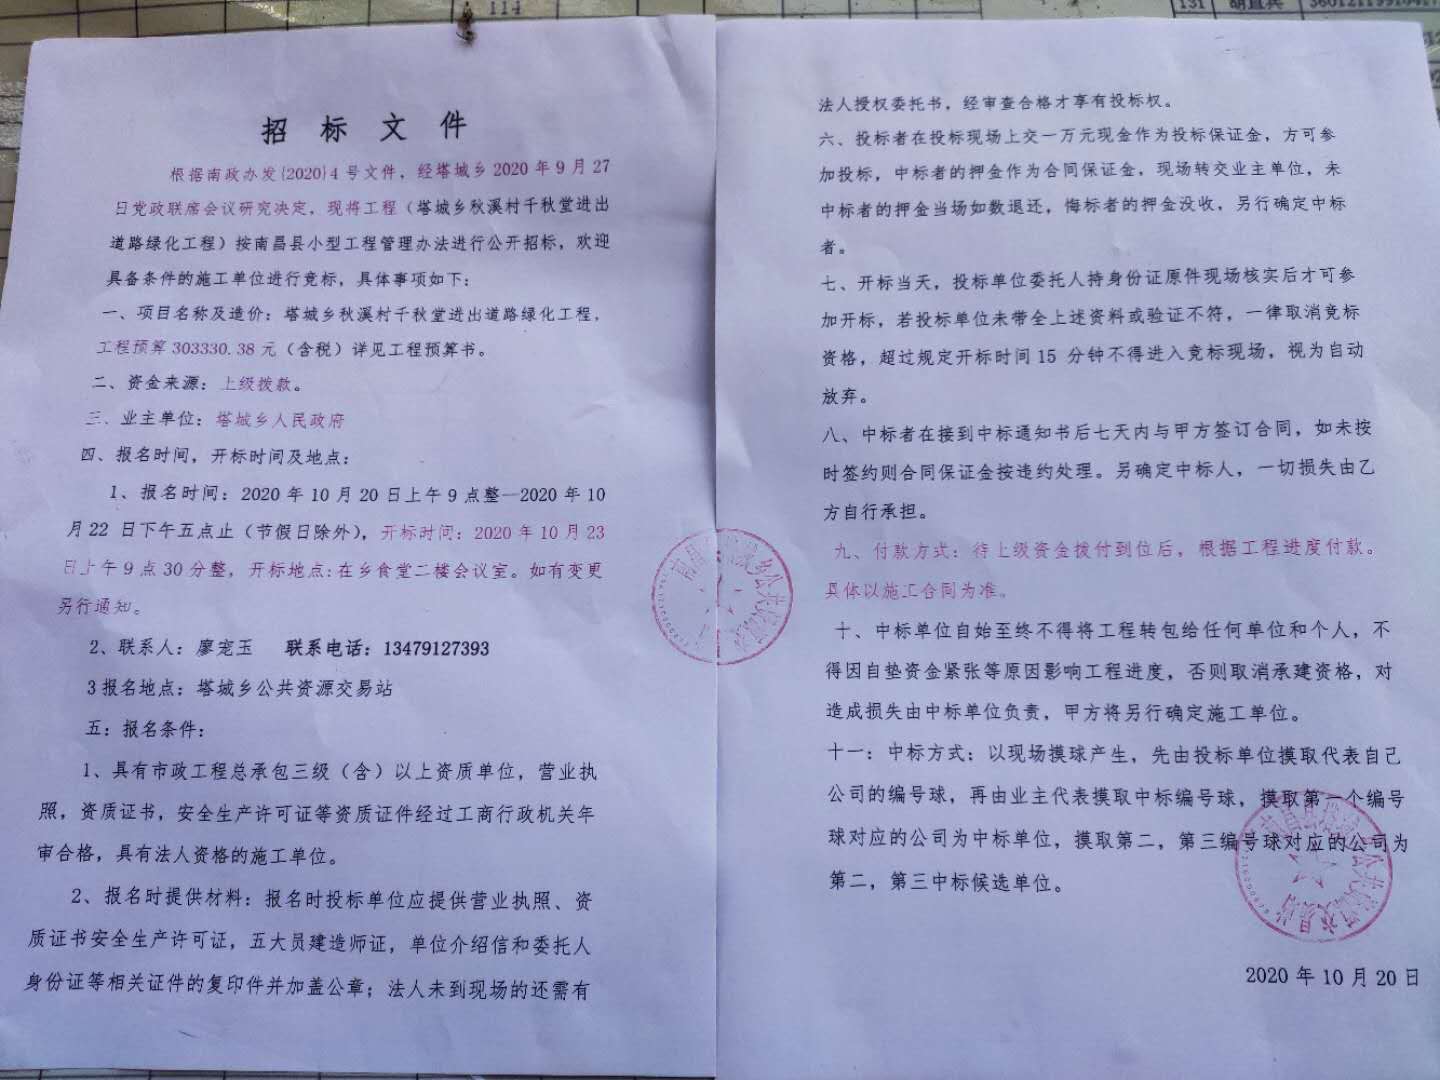 114
131 胡宜兵
招 标 文 件
根据南政办发{2020}4号文件，经塔城乡2020年9月27
日党政联席会议研究决定，现将工程（塔城乡秋溪村千秋堂进出
道路绿化工程）按南昌县小型工程管理办法进行公开招标，欢迎
具备条件的施工单位进行竞标，具体事项如下：
一、项目名称及造价：塔城乡秋溪村千秋堂进出道路绿化工程，
工程预算303330.38元（含税）详见工程预算书。
二、资金来源：上级拨款。
三、业主单位：塔城乡人民政府
四、报名时间，开标时间及地点：
1、报名时间：2020年10月20日上午9点整—2020年10
月22日下午五点止（节假日除外），开标时间：2020年10月23
日上午9点30分整，开标地点:在乡食堂二楼会议室。如有变更
另行通知。
2、联系人：廖宠玉 联系电话：13479127393
3报名地点：塔城乡公共资源交易站
五：报名条件：
1、具有市政工程总承包三级（含）以上资质单位，营业执
照，资质证书，安全生产许可证等资质证件经过工商行政机关年
审合格，具有法人资格的施工单位。
2、报名时提供材料：报名时投标单位应提供营业执照、资
质证书安全生产许可证，五大员建造师证，单位介绍信和委托人
身份证等相关证件的复印件并加盖公章；法人未到现场的还需有
法人授权委托书，经审查合格才享有投标权。
六、投标者在投标现场上交一万元现金作为投标保证金，方可参
加投标，中标者的押金作为合同保证金，现场转交业主单位，未
中标者的押金当场如数退还，悔标者的押金没收，另行确定中标
者。
七、开标当天，投标单位委托人持身份证原件现场核实后才可参
加开标，若投标单位未带全上述资料或验证不符，一律取消竞标
资格，超过规定开标时间15 分钟不得进入竞标现场，视为自动
放弃。
八、中标者在接到中标通知书后七天内与甲方签订合同，如未按
时签约则合同保证金按违约处理。另确定中标人，一切损失由乙
方自行承担。
九、付款方式：待上级资金拨付到位后，根据工程进度付款。
具体以施工合同为准。
十、中标单位自始至终不得将工程转包给任何单位和个人，不
得因自垫资金紧张等原因影响工程进度，否则取消承建资格，对
造成损失由中标单位负责，甲方将另行确定施工单位。
十一：中标方式：以现场摸球产生，先由投标单位摸取代表自己
公司的编号球，再由业主代表摸取中标编号球，摸取第一个编号
球对应的公司为中标单位，摸取第二，第三编号球对应的公司为
第二，第三中标候选单位。
2020年10月20日